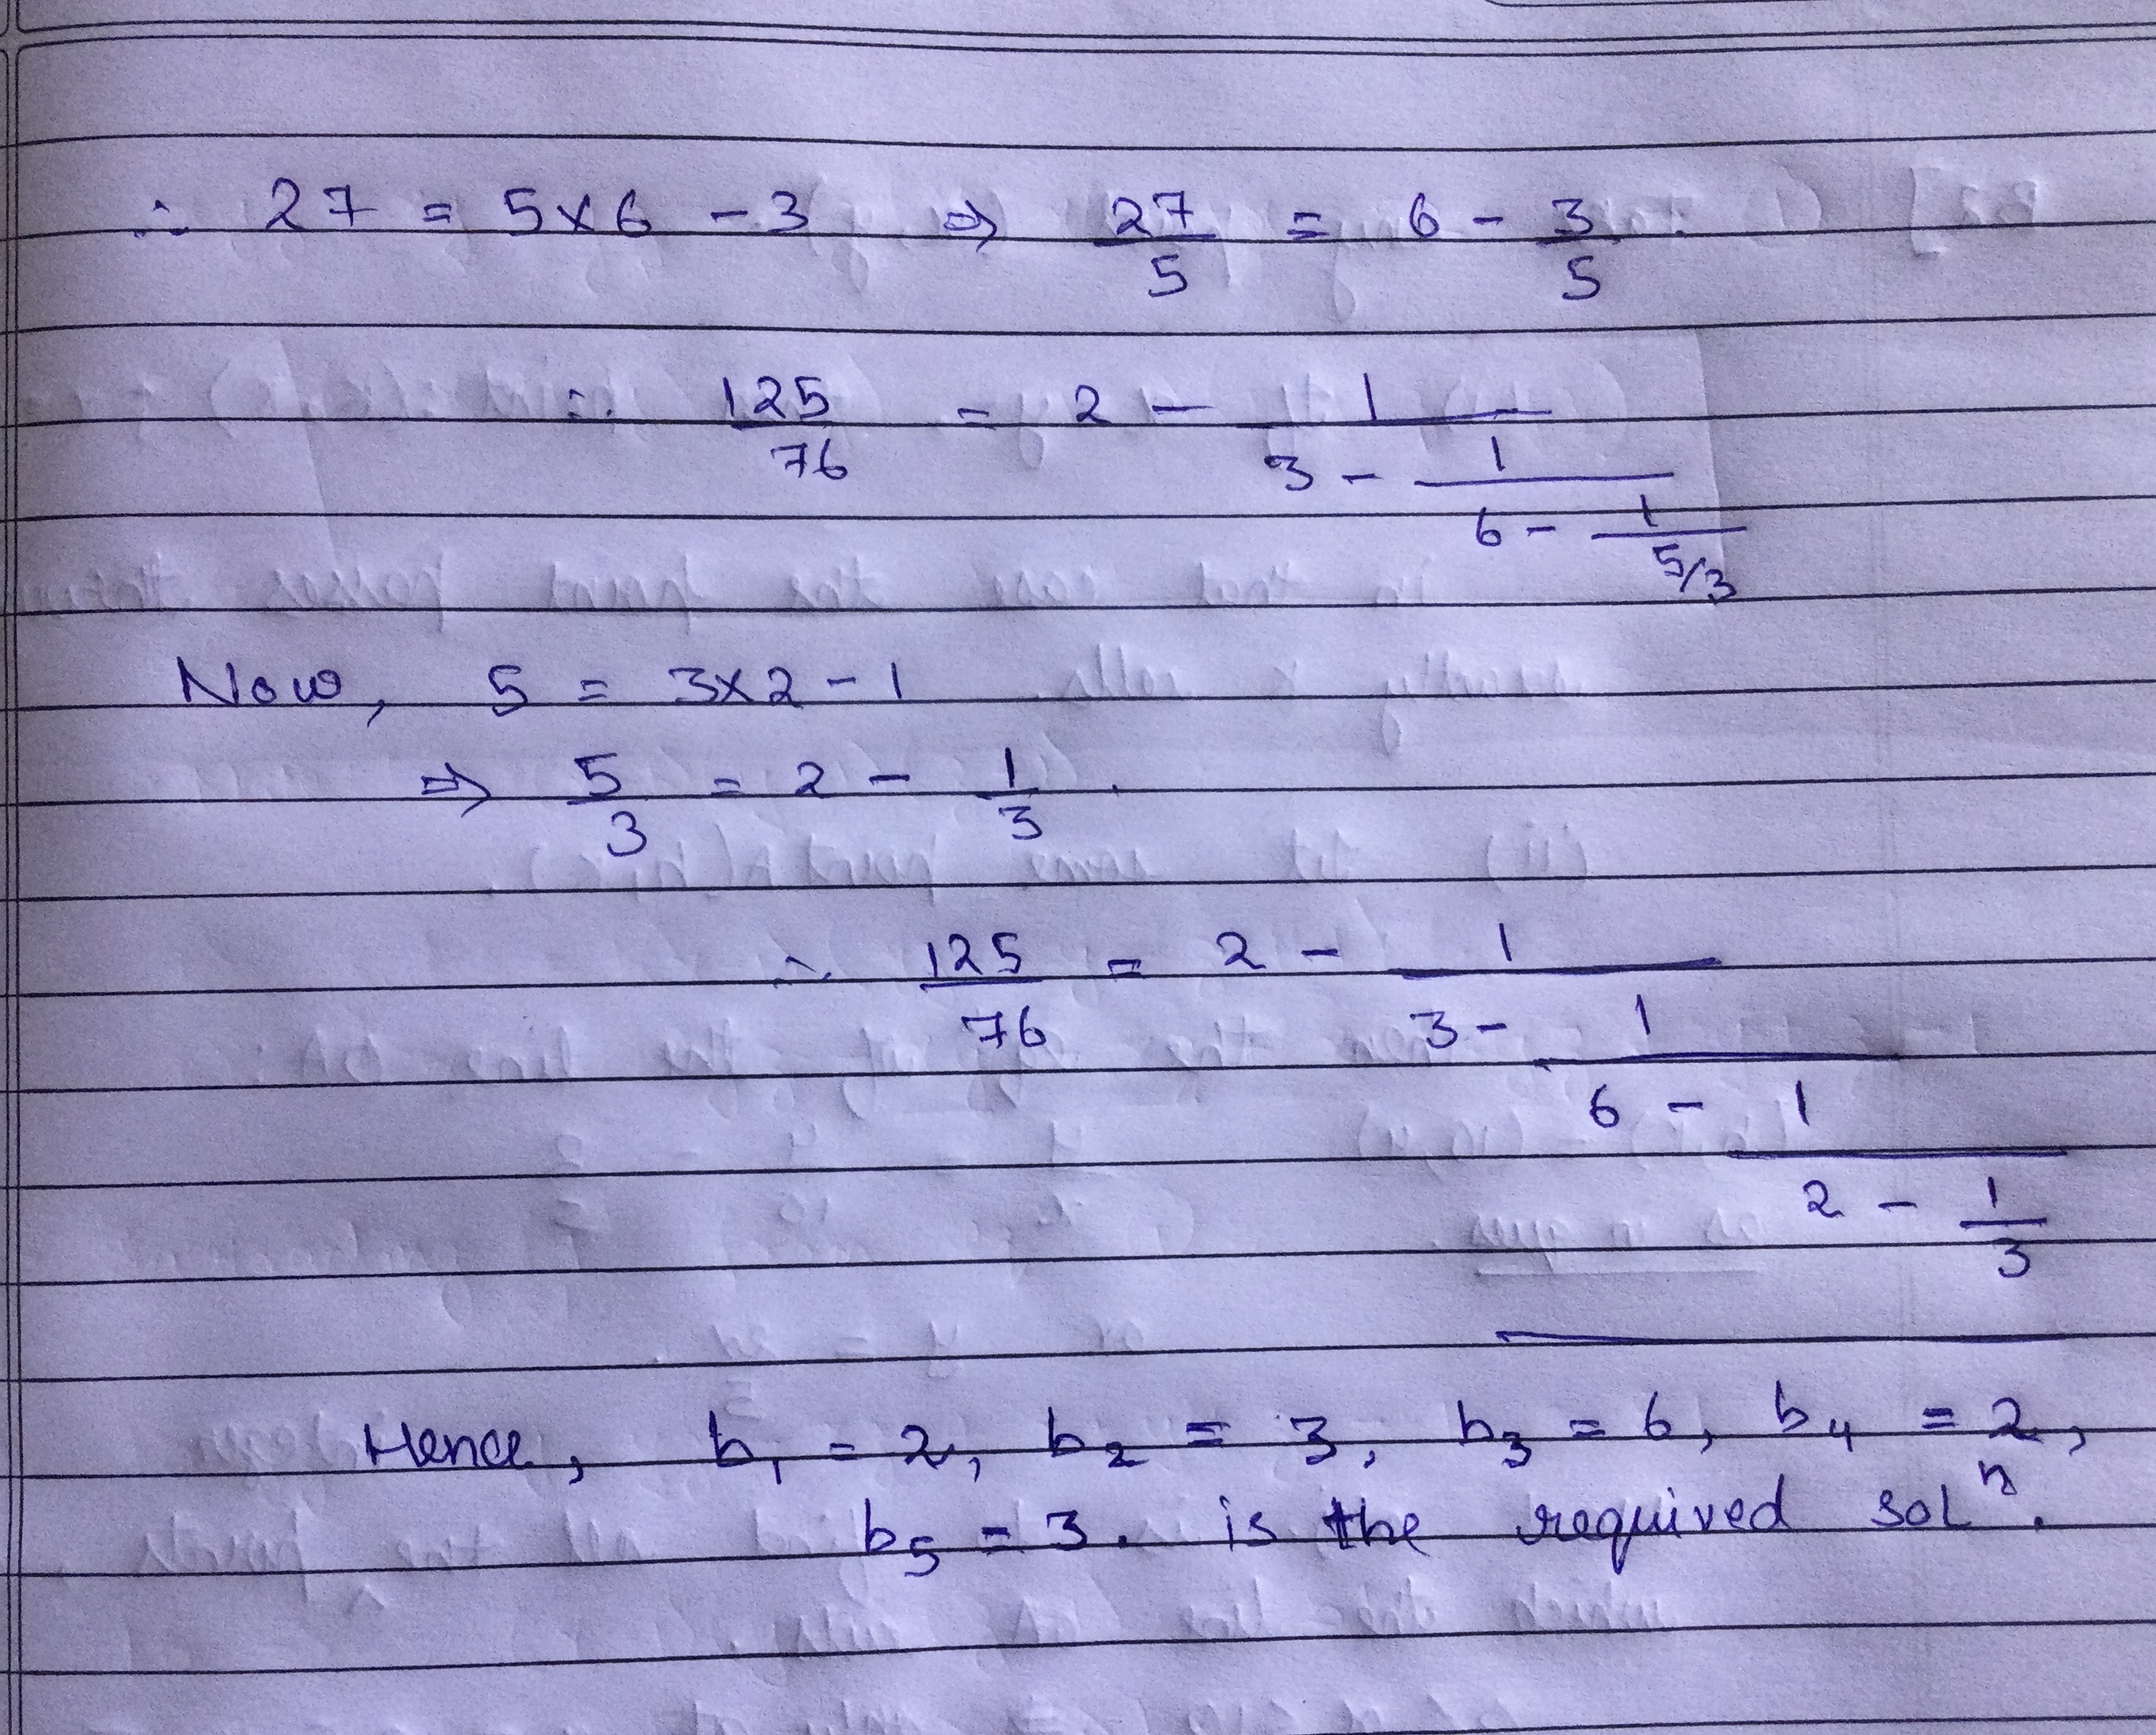 ∴ 27 = 5×6 - 3 ⇒ 27/5 = 6 - 3/5
∴ 125/76 = 2 - 1/(3 - 1/(6 - 1/(5/3)))
Now, 5 = 3×2 - 1
⇒ 5/3 = 2 - 1/3.
∴ 125/76 = 2 - 1/(3 - 1/(6 - 1/(2 - 1/3)))
Hence, b₁ = 2, b₂ = 3, b₃ = 6, b₄ = 2,
b₅ = 3. is the required solⁿ.